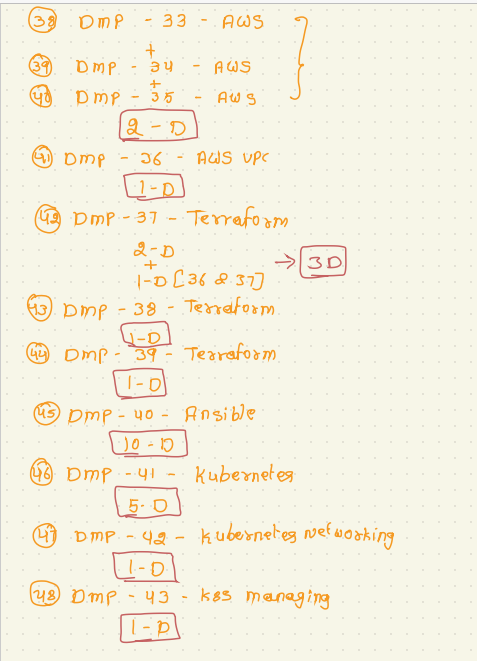 38 Dmp - 33 - AWS
+
39 Dmp - 34 - AWS
+
40 Dmp - 35 - AWS
2 - D
41 Dmp - 36 - AWS VPC
1 - D
42 Dmp - 37 - Terraform
2 - D
+
1 - D [36 & 37] → 3D
43 Dmp - 38 - Terraform
1 - D
44 Dmp - 39 - Terraform
1 - D
45 Dmp - 40 - Ansible
10 - D
46 Dmp - 41 - Kubernetes
5 - D
47 Dmp - 42 - Kubernetes Networking
1 - D
48 Dmp - 43 - K8S managing
1 - D